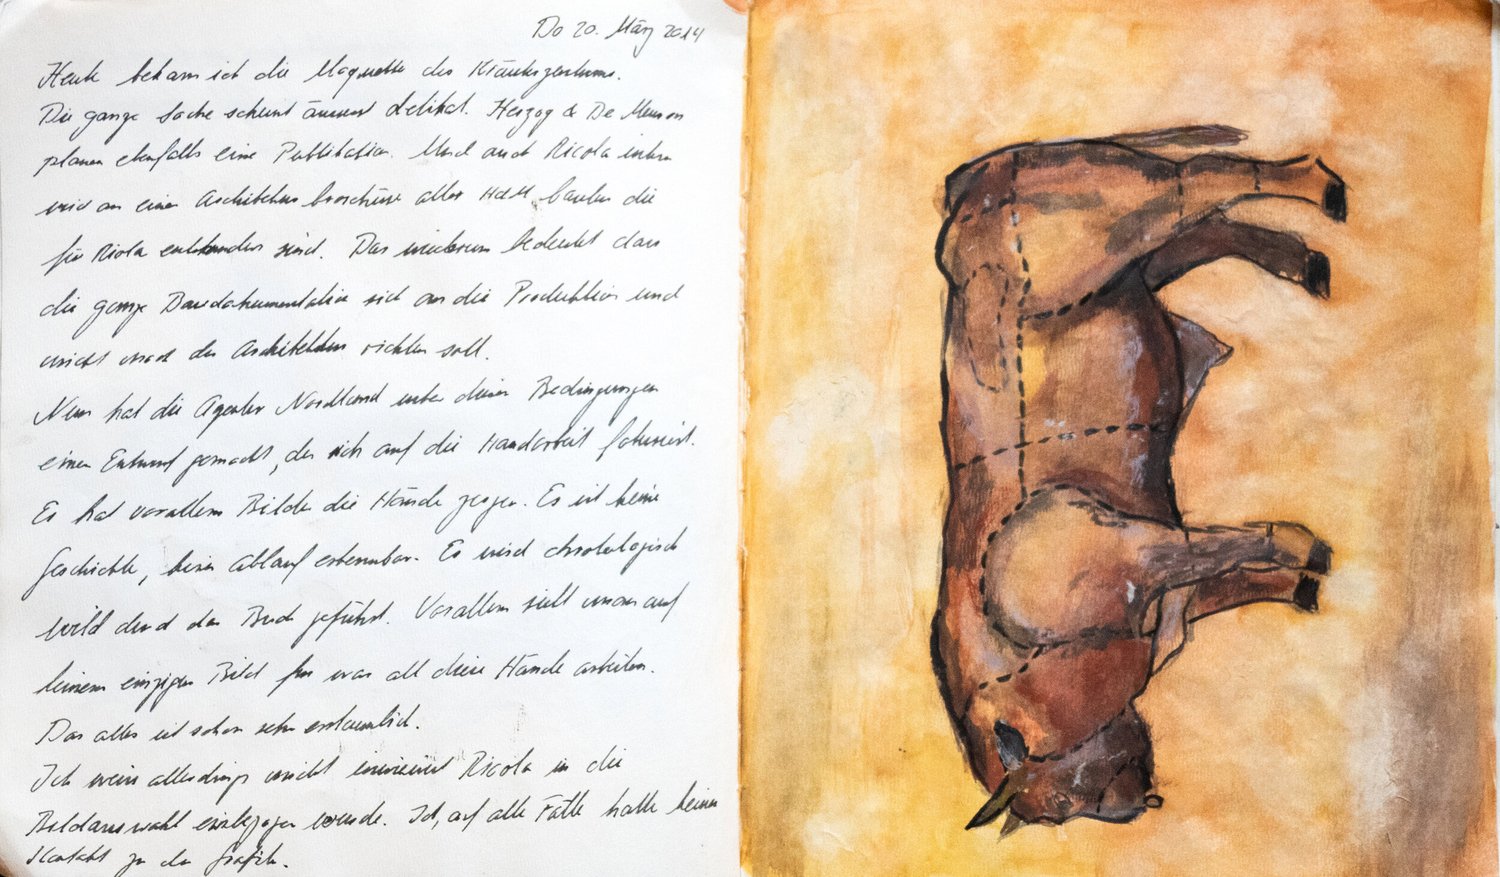 Do 20. März 2014
Heute bekam ich die Maquette des Kräuterzentrums.
Die ganze Sache scheint äusserst delikat. Herzog & De Meuron
planen ebenfalls eine Publikation. Und auch Ricola intern
wird an einer Architektur broschüre aller HdM bauten die
für Ricola entstanden sind. Das wiederum bedeutet dass
die ganze Baudokumentation sich an die Produktion und
nicht nach der Architektur richten soll.
Nun hat die Agentur Nordland unter diesen Bedingungen
einen Entwurf gemacht, der sich auf die Handarbeit fokusiert.
Es hat vorallem Bilder die Hände zeigen. Es ist keine
Geschichte, kein Ablauf erkennbar. Es wird chronologisch
wild durch das Buch geführt. Vorallem sieht man auf
keinem einzigen Bild für was all diese Hände arbeiten.
Das alles ist schon sehr erstaunlich.
Ich weiss allerdings nicht inwieweit Ricola in die
Bildauswahl einbezogen wurde. Ich, auf alle Fälle hatte keinen
Kontakt zu der Grafik.